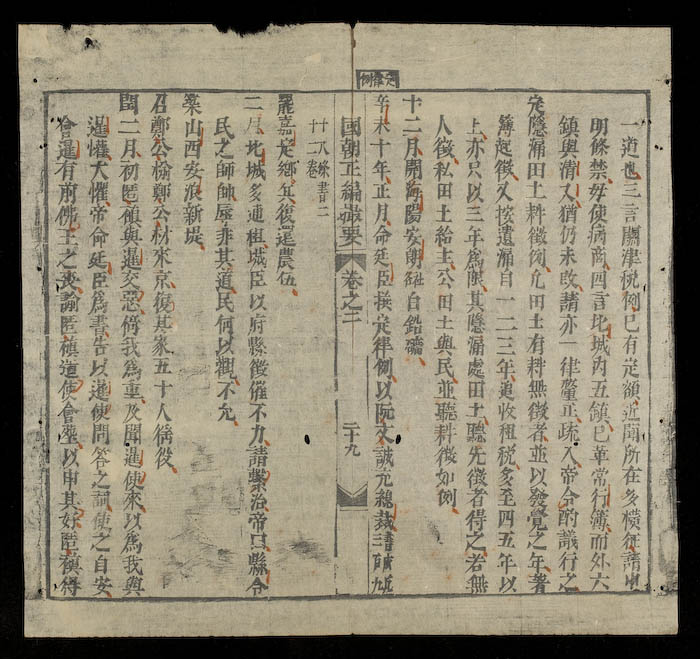 定律例
一道也三言關津稅例已有定額近聞所在多橫征請申
明條禁毋使病商四言北城內五鎮已革常行簿而外六
鎮與清乂猶仍未改請亦一律釐正疏入帝令酌議行之
定隱漏田土科徵例凡田土有耕無徵者並以發覺之年著
簿起徵又挨遺漏自一二三年追收租稅多至四五年以
上亦只以三年爲限其隱漏處田土聽先徵者得之若無
人徵私田土給主公田土與民並聽科徵如例
十二月開海陽安朗社白鉛礦
辛未十年正月命廷臣撰定律例以阮文誠充總裁
國朝正編撮要 卷之二 二十九
十八條書二
十二卷
罷嘉定鄉兵復還農伍
二月北城多逋租城臣以府縣徵催不力請繫治帝曰縣令
民之師帥辱非其道民何以觀不允
築山西安浪新堤
召鄭公檢鄭公材來京復其家五十人徭役
閏二月初匿禎與暹交惡倚我爲重及聞暹使來以爲我與
暹懽大懼帝命廷臣爲書告以暹使問答之詞使之自安
會暹有前佛王之喪諭匿禎遣使會塟以申其好匿禎得